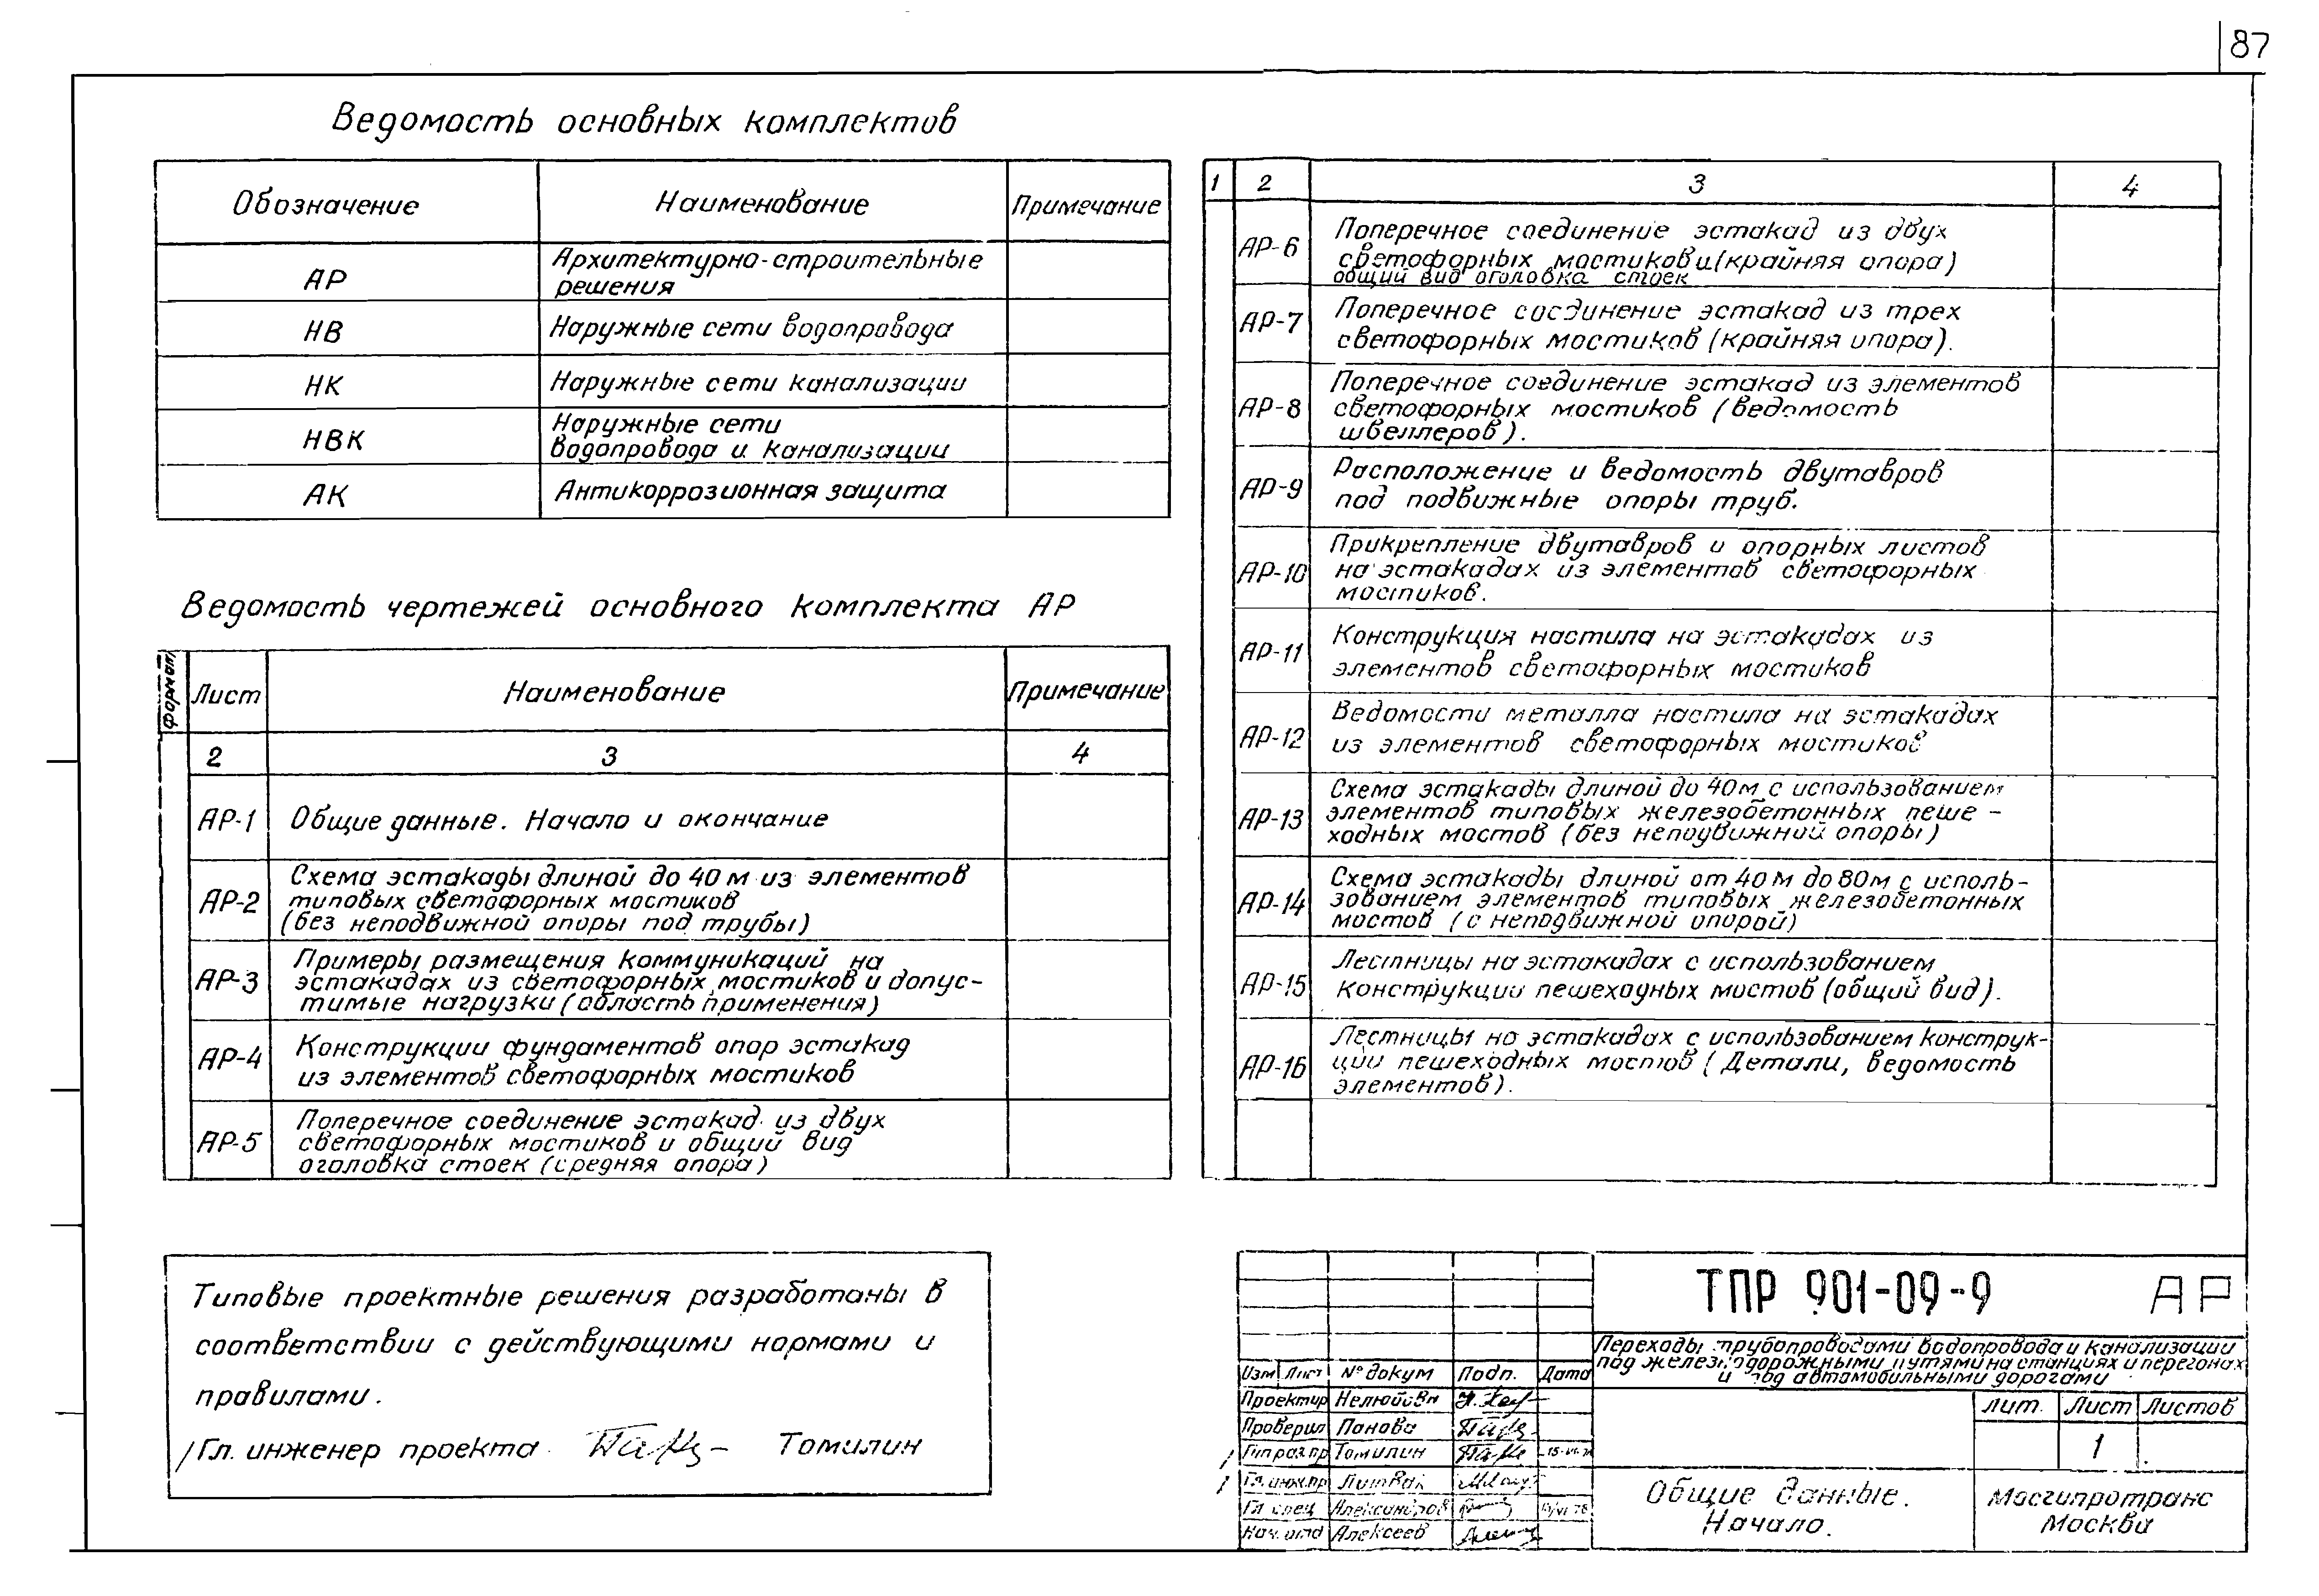 87
Ведомость основных комплектов
Обозначение
Наименование
Примечание
АР
Архитектурно-строительные
решения
НВ
Наружные сети водопровода
НК
Наружные сети канализации
НВК
Наружные сети
водопровода и канализации
АК
Антикоррозионная защита
Ведомость чертежей основного комплекта АР
Формат
Лист
Наименование
Примечание
2
3
4
АР-1
Общие данные. Начало и окончание
АР-2
Схема эстакады длиной до 40 м из элементов
типовых светофорных мостиков
(без неподвижной опоры под трубы)
АР-3
Примеры размещения коммуникаций на
эстакадах из светофорных мостиков и допус-
тимые нагрузки (область применения)
АР-4
Конструкции фундаментов опор эстакад
из элементов светофорных мостиков
АР-5
Поперечное соединение эстакад из двух
светофорных мостиков и общий вид
оголовка стоек (средняя опора)
1
2
3
4
АР-6
Поперечное соединение эстакад из двух
светофорных мостиков и (крайняя опора)
общий вид оголовка стоек
АР-7
Поперечное соединение эстакад из трех
светофорных мостиков (крайняя опора).
АР-8
Поперечное соединение эстакад из элементов
светофорных мостиков (ведомость
швеллеров).
АР-9
Расположение и ведомость двутавров
под подвижные опоры труб.
АР-10
Прикрепление двутавров и опорных листов
на эстакадах из элементов светофорных
мостиков.
АР-11
Конструкция настила на эстакадах из
элементов светофорных мостиков
АР-12
Ведомости металла настила на эстакадах
из элементов светофорных мостиков
АР-13
Схема эстакады длиной до 40м с использованием
элементов типовых железобетонных пеше-
ходных мостов (без неподвижной опоры)
АР-14
Схема эстакады длиной от 40м до 80м с исполь-
зованием элементов типовых железобетонных
мостов (с неподвижной опорой)
АР-15
Лестницы на эстакадах с использованием
конструкции пешеходных мостов (общий вид).
АР-16
Лестницы на эстакадах с использованием конструк-
ции пешеходных мостов (Детали, ведомость
элементов).
Типовые проектные решения разработаны в
соответствии с действующими нормами и
правилами.
Гл. инженер проекта Томилин
ТПР 901-09-9 АР
Переходы трубопроводами водопровода и канализации
под железнодорожными путями на станциях и перегонах
и под автомобильными дорогами
Изм Лист № докум Подп. Дата
Проектир
Проверил Панова
Гип разр пр Томилин
Гл. инж.пр Литвак
Гл спец Александров
Нач. отд Алексеев
лит. Лист Листов
1
Общие данные.
Начало.
Мосгипротранс
Москва